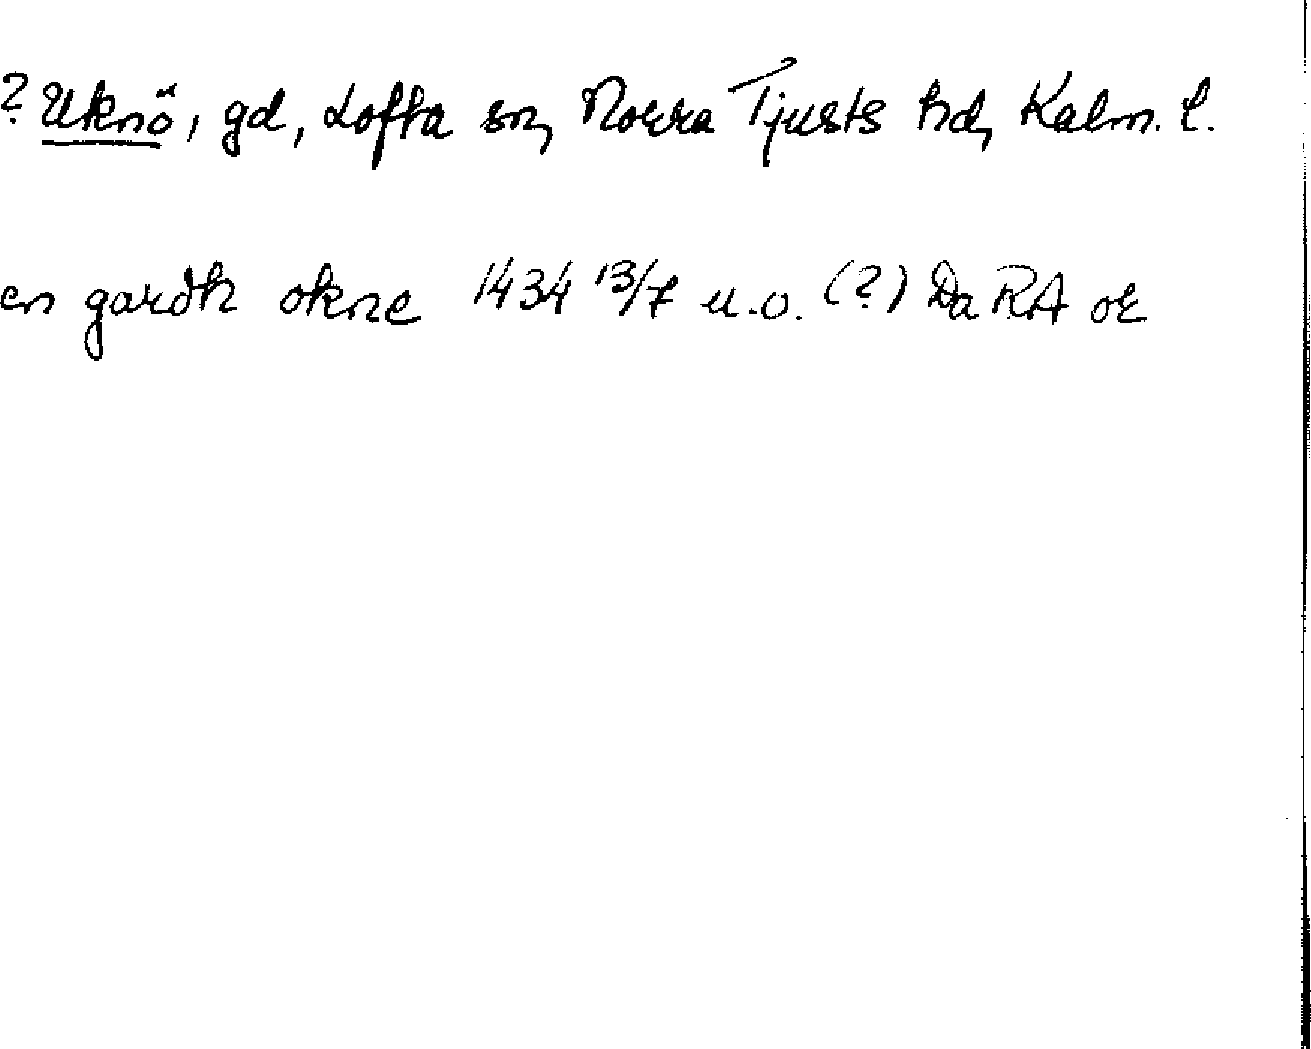 ? Uknö, gd, Lofta sn, Norra Tjusts hd, Kalm. l.
en gardh okne 1434 13/7 u.o. (?) Da RA or